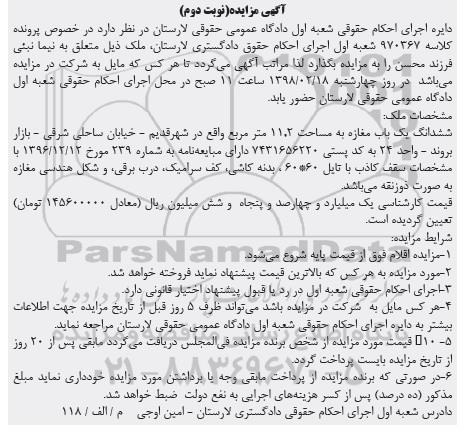 آگهی مزایده(نوبت دوم)
دایره اجرای احکام حقوقی شعبه اول دادگاه عمومی حقوقی لارستان در نظر دارد در خصوص پرونده
کلاسه ۹۷۰۳۶۷ شعبه اول اجرای احکام حقوق دادگستری لارستان، ملک ذیل متعلق به نیما نبئی
فرزند محسن را به مزایده بگذارد لذا مراتب آگهی می‌گردد تا هر کس که مایل به شرکت در مزایده
می‌باشد در روز چهارشنبه ۱۳۹۸/۰۲/۱۸ ساعت ۱۱ صبح در محل اجرای احکام حقوقی شعبه اول
دادگاه عمومی حقوقی لارستان حضور یابد.
مشخصات ملک:
ششدانگ یک باب مغازه به مساحت ۱۱٫۲ متر مربع واقع در شهرقدیم - خیابان ساحلی شرقی - بازار
بروند - واحد ۲۴ به کد پستی ۷۴۳۱۶۵۶۲۲۰ دارای مبایعه‌نامه به شماره ۲۳۹ مورخ ۱۳۹۶/۱۲/۱۲ با
مشخصات سقف کاذب با تایل ۶۰*۶۰ ، بدنه کاشی، کف سرامیک، درب برقی، و شکل هندسی مغازه
به صورت ذوزنقه می‌باشد.
قیمت کارشناسی یک میلیارد و چهارصد و پنجاه و شش میلیون ریال (معادل ۱۴۵۶۰۰۰۰۰ تومان)
تعیین گردیده است.
شرایط مزایده:
۱-مزایده اقلام فوق از قیمت پایه شروع می‌شود.
۲-مورد مزایده به هر کس که بالاترین قیمت پیشنهاد نماید فروخته خواهد شد.
۳-اجرای احکام حقوقی شعبه اول در رد یا قبول پیشنهاد اختیار قانونی دارد.
۴-هر کس مایل به شرکت در مزایده باشد می‌تواند ظرف ۵ روز قبل از تاریخ مزایده جهت اطلاعات
بیشتر به دایره اجرای احکام حقوقی شعبه اول دادگاه عمومی حقوقی لارستان مراجعه نماید.
۵- ۱۰٪ قیمت مورد مزایده از شخص برنده مزایده فی‌المجلس دریافت می‌گردد مابقی پس از ۲۰ روز
از تاریخ مزایده بایست پرداخت گردد.
۶-در صورتی که برنده مزایده از پرداخت مابقی وجه یا برداشتن مورد مزایده خودداری نماید مبلغ
مذکور (ده درصد) پس از کسر هزینه‌های اجرایی به نفع دولت ضبط خواهد شد.
دادرس شعبه اول اجرای احکام حقوقی دادگستری لارستان - امین اوجی م / الف / ۱۱۸